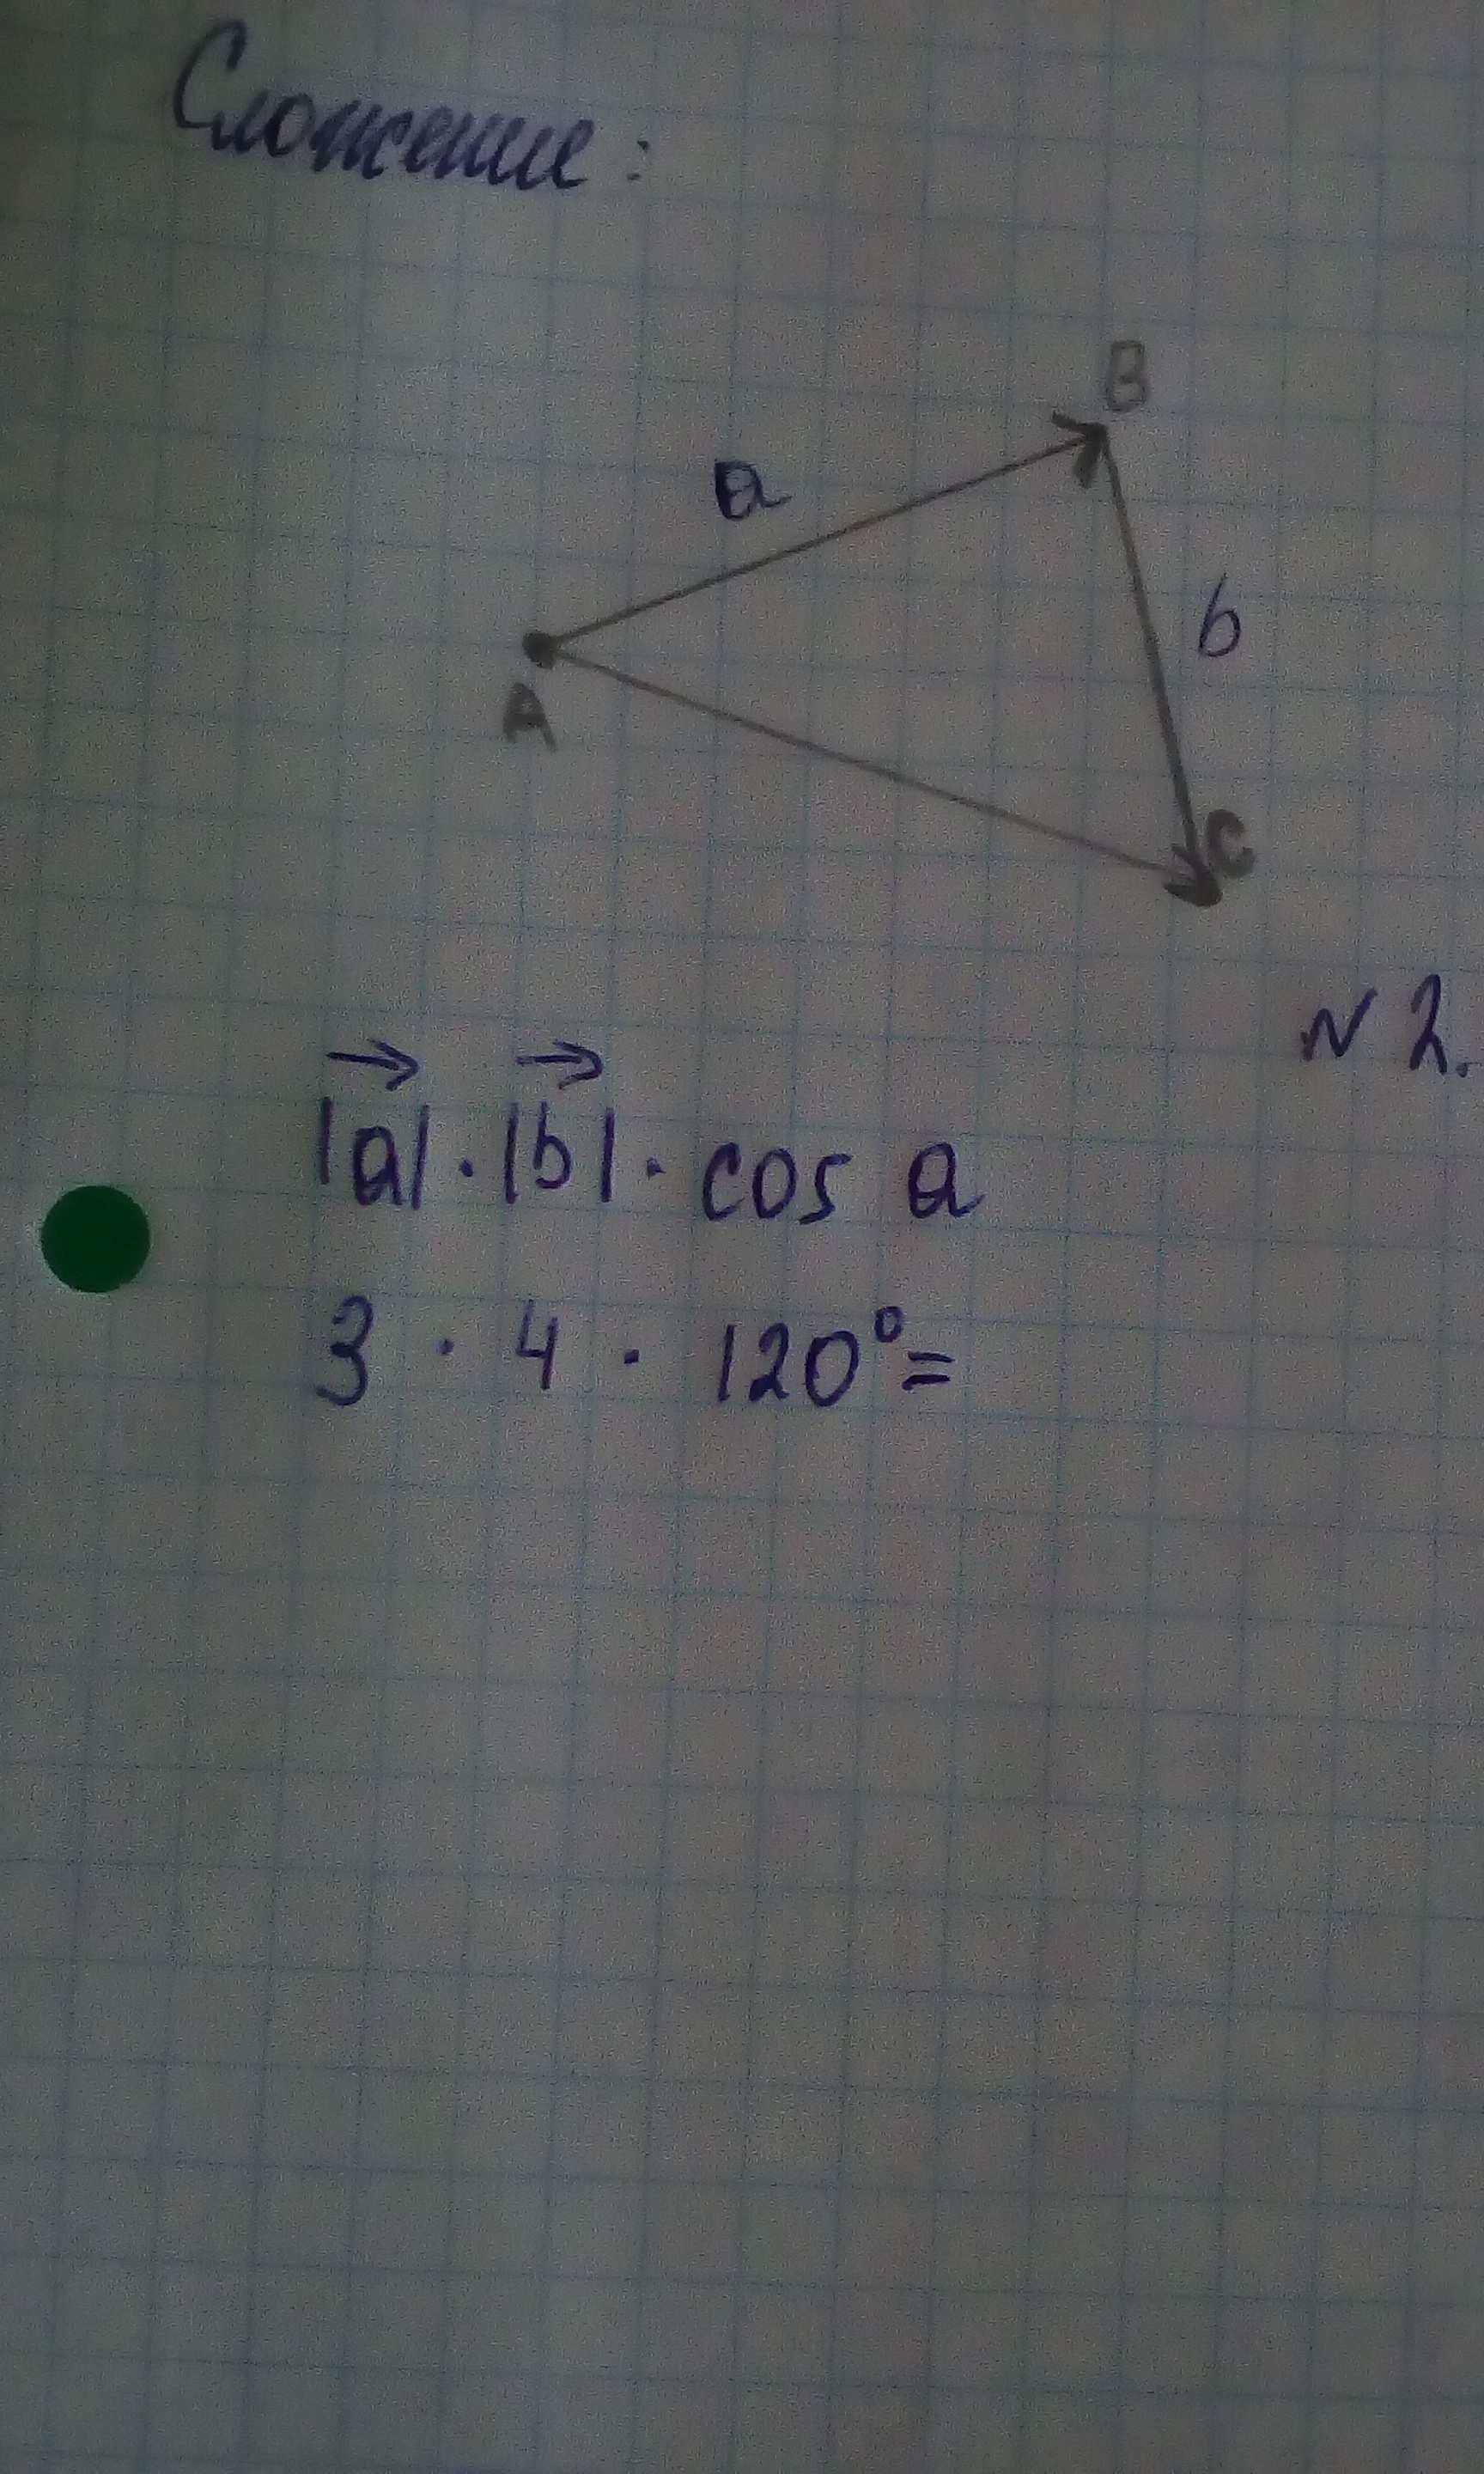 Сложение:
B
a
b
A
C
N 2.
|a| · |b| · cos a
3 · 4 · 120°=